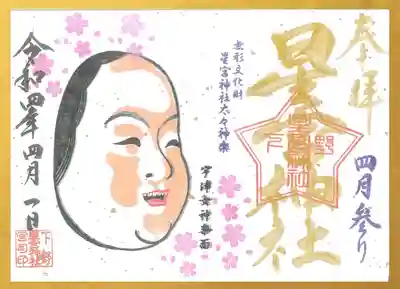 奉拝
四月参り
星宮神社
無形文化財
星宮神社太々神楽
宇津女神楽面
令和四年四月一日
下野
星宮神社